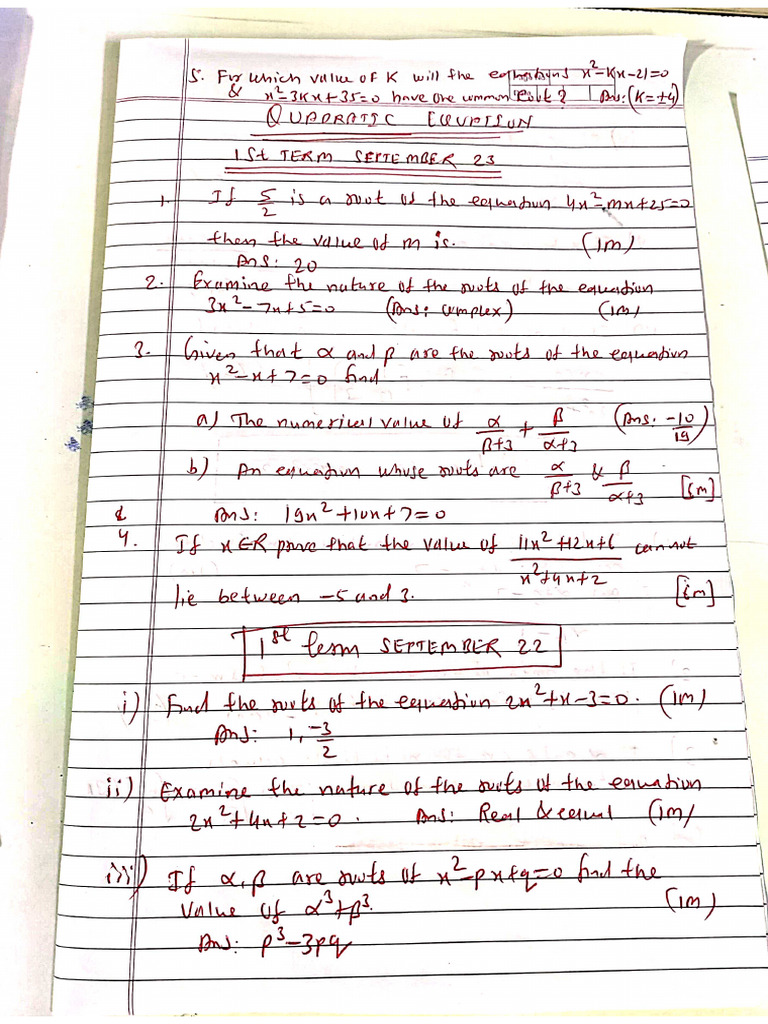 5. For which value of K will the equations x²-K(x-21=0
& x²-3Kx+35=0 have one common root? Ans: (K=±4)
QUADRATIC EQUATION
1st TERM SEPTEMBER 23
1. If 5/2 is a root of the equation 4x²-mx+25=0
then the value of m is. (1m)
Ans: 20
2. Examine the nature of the roots of the equation
3x²-7x+5=0 (Ans: complex) (1m)
3. Given that α and β are the roots of the equation
x²-x+7=0 find
a) The numerical value of α/β+3 + β/α+3 (Ans. -10/19)
b) An equation whose roots are α/β+3 & β/α+3 [5m]
Ans: 19x²+10x+7=0
4. If x∈R prove that the value of 11x²+12x+6/x²+4x+2 cannot
lie between -5 and 3. [5m]
1st Term SEPTEMBER 22
i) Find the roots of the equation 2x²+x-3=0. (1m)
Ans: 1, -3/2
ii) Examine the nature of the roots of the equation
2x²+4x+2=0. Ans: Real & equal (1m)
iii) If α, β are roots of x²-px+q=0 find the
value of α³+β³. (1m)
Ans: p³-3pq